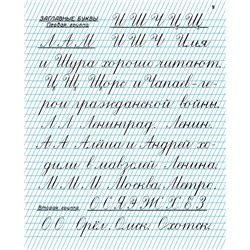 9
ЗАГЛАВНЫЕ БУКВЫ
Первая группа
И Ш Ч Ц Щ
Л А М И Ш Ч Илья
и Шура хорошо читают.
Ц Щ Щорс и Чапаев-ге-
рои гражданской войны.
Л Л Ленинград. Ленин.
А А Алёша и Андрей хо-
дили в мавзолей Ленина.
М М М Москва. Метро.
Вторая группа О С Я Э Ж Х Е З
О О Орёл. Омск. Охотск.